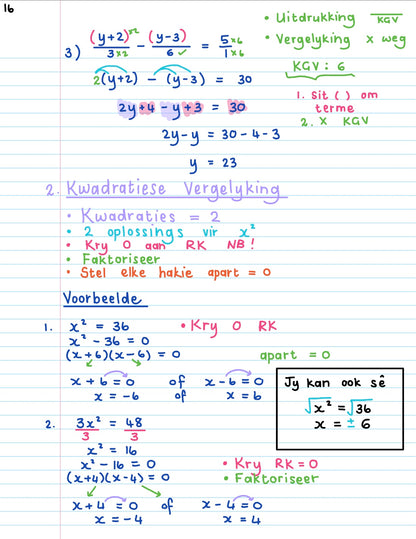 16
• Uitdrukking ‾KGV
• Vergelyking x weg
3) (y+2)^x2/3 x2 - (y-3)/6 ✓ = 5 x6/1 x6
KGV : 6
2(y+2) - (y-3) = 30
1. Sit ( ) om terme
2y+4 - y+3 = 30
2. x KGV
2y-y = 30-4-3
y = 23
2. Kwadratiese Vergelyking
• Kwadraties = 2
• 2 oplossings vir x²
• Kry 0 aan RK NB!
• Faktoriseer
• Stel elke hakie apart = 0
Voorbeelde
1. x² = 36 • Kry 0 RK
x² - 36 = 0
(x+6)(x-6) = 0 apart = 0
x + 6 = 0 of x - 6 = 0
x = -6 of x = 6
Jy kan ook sê
√x² = √36
x = ± 6
2. 3x²/3 = 48/3
x² = 16
x² - 16 = 0 • Kry RK = 0
(x+4)(x-4) = 0 • Faktoriseer
x + 4 = 0 of x - 4 = 0
x = -4 x = 4